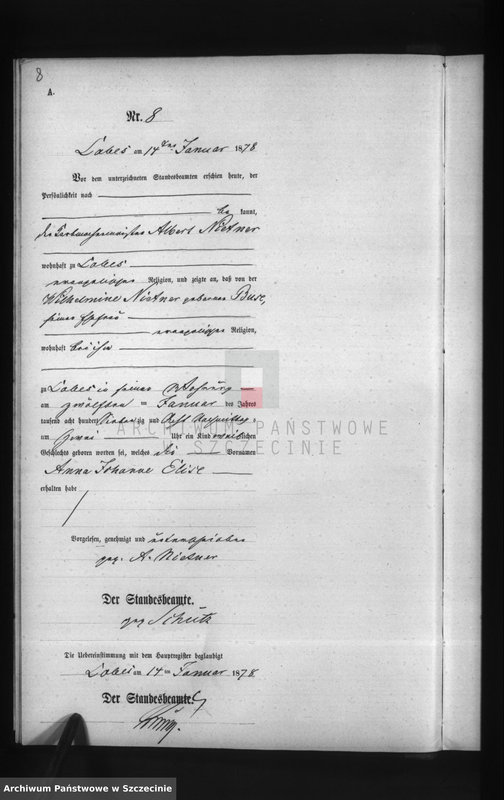 8
A.
Nr. 8
Labes am 14ten Januar 1878
Vor dem unterzeichneten Standesbeamten erschien heute, der
Persönlichkeit nach
be kannt,
Albert Nietner
wohnhaft zu Labes
evangelischer Religion, und zeigte an, daß von der
Wilhelmine Nietner geborenen
seiner Ehefrau
evangelischer Religion,
wohnhaft bei ihm
zu Labes in seiner Wohnung
am zwölften Januar des Jahres
tausend acht hundert siebenzig und acht Nachmittags
um zwei Uhr ein Kind weiblichen
Geschlechts geboren worden sei, welches die Vornamen
Anna Johanne Elise
erhalten habe
Vorgelesen, genehmigt und unterschrieben
gez. A. Nietner
Der Standesbeamte.
gez. Schütz
Die Uebereinstimmung mit dem Hauptregister beglaubigt
Labes am 14 ten Januar 1878
Der Standesbeamte.
ARCHIWUM PAŃSTWOWE
W SZCZECINIE
Archiwum Państwowe w Szczecinie